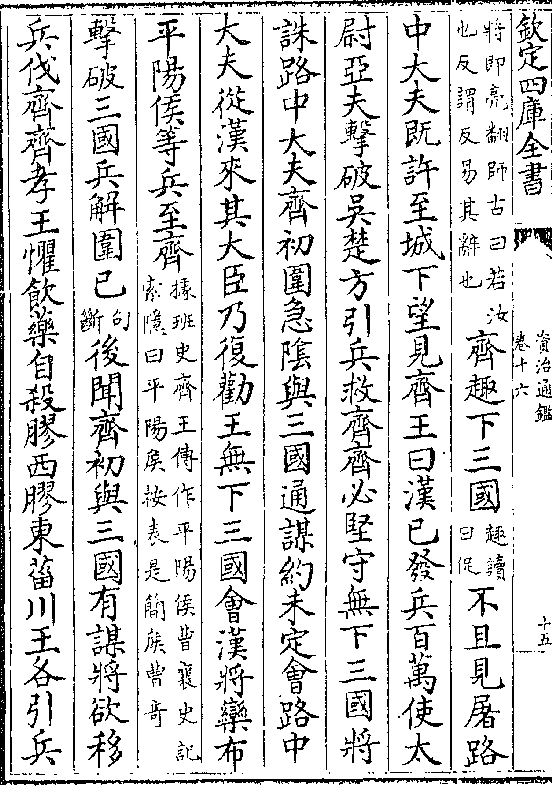 欽定四庫全書
資治通鑑
卷十六
十五
將即亮翻師古曰若汝
也反謂反易其辭也
齊趣下三國
趣讀
曰促
不且見屠路
中大夫既許至城下望見齊王曰漢已發兵百萬使太
尉亞夫擊破吳楚方引兵救齊齊必堅守無下三國將
誅路中大夫齊初圍急隂與三國通謀約未定會路中
大夫從漢來其大臣乃復勸王無下三國會漢將欒布
平陽侯等兵至齊
據班史齊王傳作平陽侯曹襄史記
索隱曰平陽侯按表是簡侯曹奇
擊破三國兵解圍已
句
斷
後聞齊初與三國有謀將欲移
兵伐齊齊孝王懼飲藥自殺膠西膠東菑川王各引兵